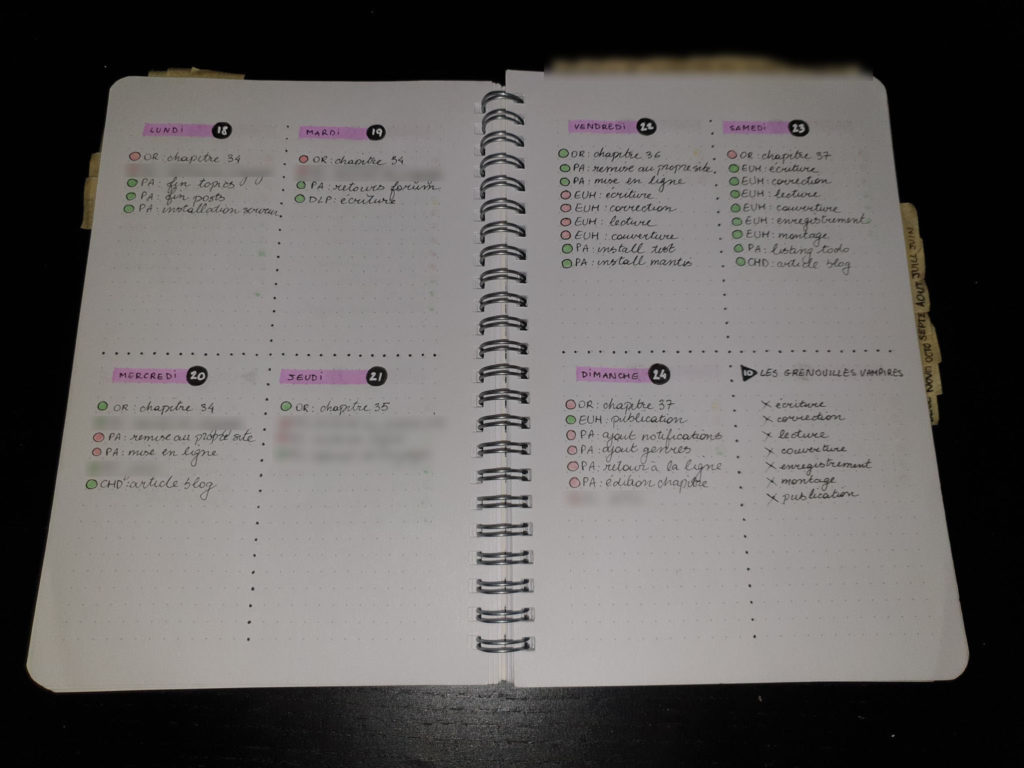 LUNDI 18
OR : chapitre 34
PA : fin topics
PA : fin posts
PA : installation serveur
MARDI 19
OR : chapitre 34
PA : retours forum
DLP : écriture
MERCREDI 20
OR : chapitre 34
PA : remise au propre site
PA : mise en ligne
CHD : article blog
JEUDI 21
OR : chapitre 35
VENDREDI 22
OR : chapitre 36
PA : remise au propre site
PA : mise en ligne
EUH : écriture
EUH : correction
EUH : lecture
EUH : couverture
PA : install test
PA : install mantis
SAMEDI 23
OR : chapitre 37
EUH : écriture
EUH : correction
EUH : lecture
EUH : couverture
EUH : enregistrement
EUH : montage
PA : listing todo
CHD : article blog
DIMANCHE 24
OR : chapitre 37
EUH : publication
PA : ajout notifications
PA : ajout genres
PA : retour à la ligne
PA : édition chapitre
10 LES GRENOUILLES VAMPIRES
× écriture
× correction
× lecture
× couverture
× enregistrement
× montage
× publication
NOVE OCTO SEPTE AOUT JUILL JUIN